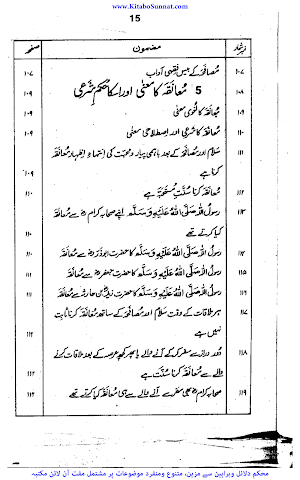 www.KitaboSunnat.com
15
نمبرشمار مضمون صفحہ
۱۰۷ مُصافحہ کے بیس فقہی آداب ۱۰۷
۱۰۸ 5 مُعانقہ کا معنٰی اور اسکا حُکمِ شرعی ۱۰۹
۱۰۹ مُعانقہ کا لُغوی معنٰی ۱۰۹
۱۱۰ مُعانقہ کا شرعی اور اِصطلاحی معنٰی ۱۰۹
۱۱۱ سَلام اور مُصافحہ کے بعد باہمی پیار و محبّت کی اِنتہاءِ اِظہار مُعانقہ
کرنا ہے ۱۰۹
۱۱۲ مُعانقہ کرنا سُنّتِ مُستحبّہ ہے ۱۱۰
۱۱۳ رسولُ اللہ صَلَّی اللہُ عَلَیْہِ وَسَلَّم اپنے صحابہ کرام سے مُعانقہ
کیا کرتے تھے ۱۱۰
۱۱۴ رسولُ اللہ صَلَّی اللہُ عَلَیْہِ وَسَلَّم کا حضرت ابوذر سے مُعانقہ ۱۱۰
۱۱۵ رسولُ اللہ صَلَّی اللہُ عَلَیْہِ وَسَلَّم کا حضرت جعفر سے مُعانقہ ۱۱۱
۱۱۶ رسولُ اللہ صَلَّی اللہُ عَلَیْہِ وَسَلَّم کا حضرت زید بن حارثہ سے مُعانقہ ۱۱۱
۱۱۷ ہر مُلاقات کے وقت سَلام اور مُصافحہ کے ساتھ مُعانقہ کرنا ثابت
نہیں ہے ۱۱۲
۱۱۸ دُور دراز سے سفر کر کے آنے والے یا پھر کچھ عرصہ کے بعد ملاقات کرنے
والے سے مُعانقہ کرنا سُنّت ہے ۱۱۲
۱۱۹ صحابہ کرام بھی سفر سے آنے والے سے ہی مُعانقہ کیا کرتے تھے ۱۱۲
محکم دلائل وبراہین سے مزین، متنوع ومنفرد موضوعات پر مشتمل مفت آن لائن مکتبہ